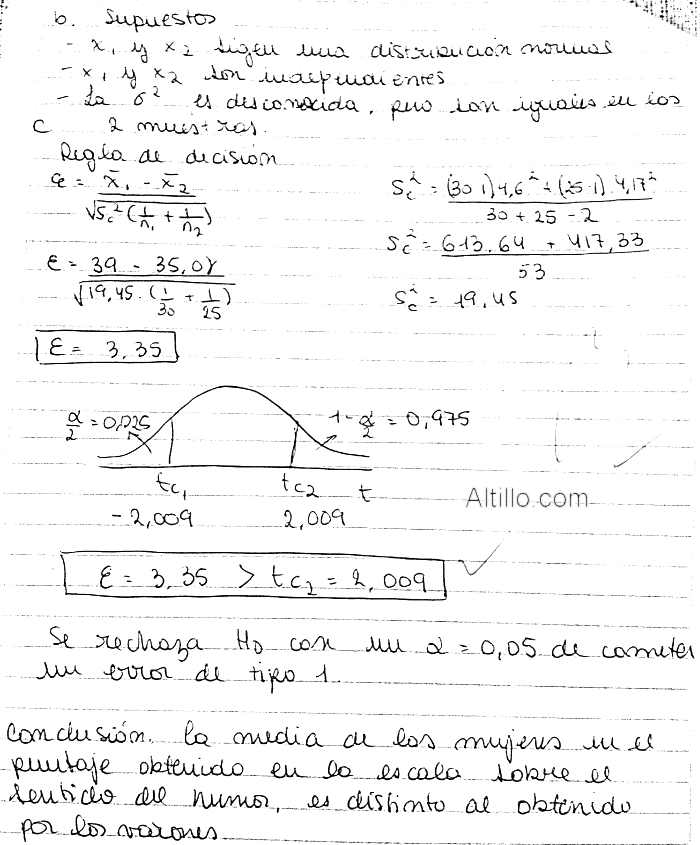 b. Supuestos
- x₁ y x₂ sigen una distribución normal
- x₁ y x₂ son independientes
- La σ² es desconocida, pero son iguales en los
c 2 muestras.
Regla de decisión
ε = x̄₁ - x̄₂ / √Sc² (1/n₁ + 1/n₂)
Sc² = (30-1) 4,6² + (25-1) . 4,17² / 30 + 25 - 2
Sc² = 613.64 + 417,33 / 53
ε = 39 - 35,08 / √19,45 . (1/30 + 1/25)
Sc² = 19,45
ε = 3,35
α/2 = 0,025
1 - α/2 = 0,975
tc₁ tc₂ t
-2,009 2,009
Altillo.com
ε = 3,35 > tc₂ = 2,009
Se rechaza H₀ con un α = 0,05 de cometer
un error de tipo 1.
Conclusión. La media de las mujeres en el
puntaje obtenido en la escala sobre el
sentido del humor, es distinto al obtenido
por los varones.